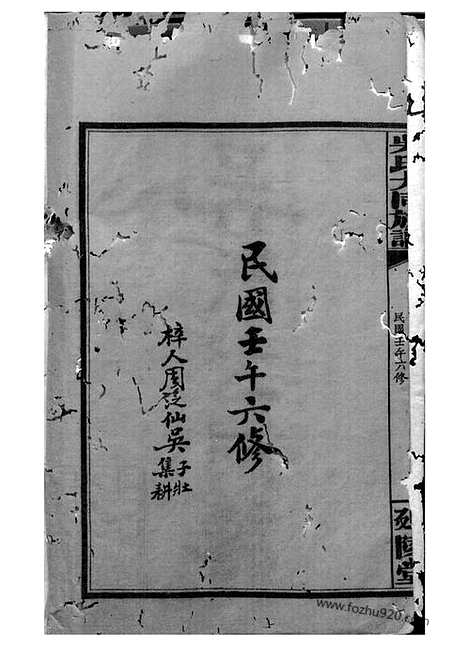 吳氏大同族譜
民國壬午六修
民國壬午六修
梓人周廷仙吳子壯
集耕
www.fozhu920.com